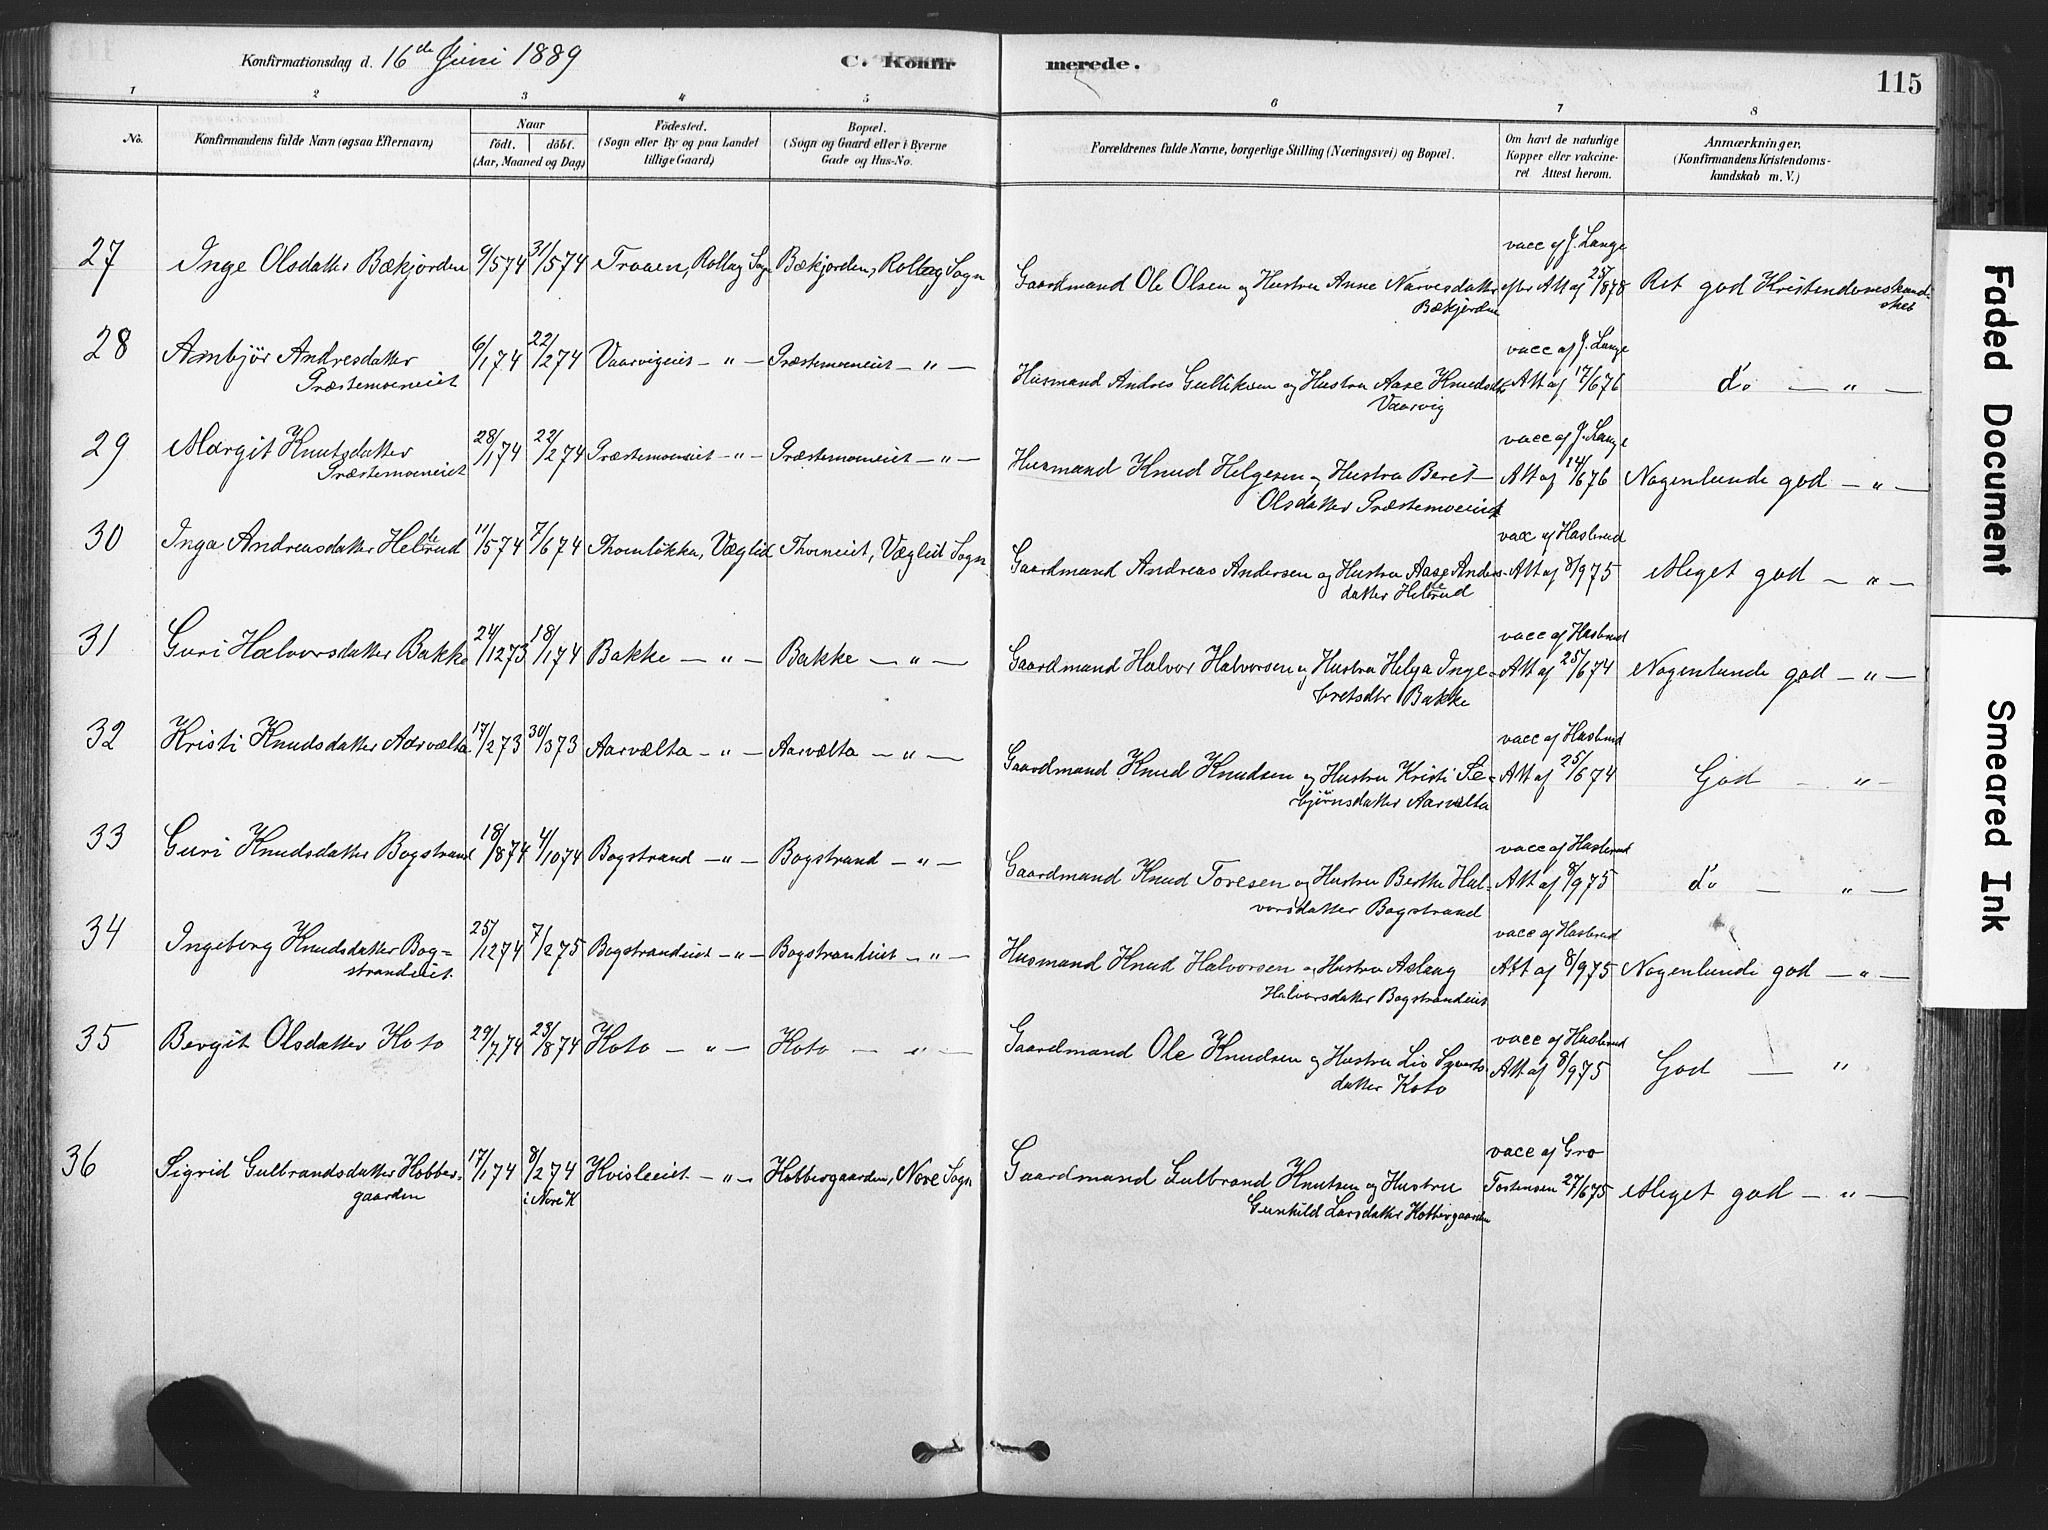 Konfirmationsdag d. 16de Juni 1889 C. Konfirmerede. 115
1 2 3 4 5 6 7 8
No. Konfirmandens fulde Navn (ogsaa Efternavn) Naar födt. döbt. (Aar, Maaned og Dag) Födested. (Sogn eller By og paa Landet tillige Gaard) Bopæl. (Sogn og Gaard eller i Byerne Gade og Hus-No. Forældrenes fulde Navne, borgerlige Stilling (Næringsvei) og Bopæl. Om havt de naturlige Kopper eller vakcineret Attest herom. Anmærkninger. (Konfirmandens Kristendomskundskab m. V.)
27 Inge Olsdatter Bækjorden 9/5 74 31/5 74 Traaen, Rollag Sogn Bækjorden, Rollag Sogn Gaardmand Ole Olsen og Hustru Anne Narvesdatter Bækjorden vacc af J. Lange efter Att af 25/8 78 Ret god Kristendomskundskab
28 Ambjör Andresdatter Præstemoeneiet 6/1 74 22/2 74 Vaarvigeiet — " — Præstemoeneiet — " — Husmand Andres Gulliksen og Hustru Aase Knudsdtr Vaarvig vacc af J. Lange Att af 17/6 76 do — " —
29 Margit Knutsdatter Præstemoeneiet 28/1 74 22/2 74 Præstemoeneiet — " — Præstemoeneiet — " — Husmand Knud Helgesen og Hustru Beret Olsdatter Præstemoeneiet vacc af J. Lange Att af 14/6 76 Nogenlunde god — " —
30 Inga Andreasdatter Helterud 11/5 74 7/6 74 Thomlökka, Væglid Thoeneiet, Væglid Sogn Gaardmand Andreas Andersen og Hustru Aase Andersdatter Helterud vax af Haslerud Att af 8/9 75 Meget god — " —
31 Guri Halvorsdatter Bakke 24/12 73 18/1 74 Bakke — " — Bakke — " — Gaardmand Halvor Halvorsen og Hustru Helga Ingebretsdtr Bakke vacc af Haslerud Att af 25/6 74 Nogenlunde god — " —
32 Kristi Knudsdatter Aarvælta 17/2 73 30/3 73 Aarvælta — " — Aarvælta — " — Gaardmand Knud Knudsen og Hustru Kristi Sebjörnsdatter Aarvelta vacc af Haslerud Att af 25/6 74 God — " —
33 Guri Knudsdatter Bogstrand 18/8 74 4/10 74 Bogstrand — " — Bogstrand — " — Gaardmand Knud Toresen og Hustru Berthe Halvorsdatter Bogstrand vacc af Haslerud Att af 8/9 75 do — " —
34 Ingeborg Knudsdatter Bogstrandeiet 25/12 74 7/2 75 Bogstrandeiet — " — Bogstrandeiet — " — Husmand Knud Halvorsen og Hustru Aslaug Halvorsdatter Bogstrandeiet vacc af Haslerud Att af 8/9 75 Nogenlunde god — " —
35 Bergit Olsdatter Koto 29/7 74 23/8 74 Koto — " — Koto — " — Gaardmand Ole Knudsen og Hustru Liv Syvertsdatter Koto vacc af Haslerud Att af 8/9 75 God — "
36 Sigrid Gulbrandsdatter Hobbergaarden 17/1 74 8/2 74 i Nore K Kvisleeiet — " — Hobbergaarden, Nore Sogn Gaardmand Gulbrand Knutsen og Hustru Gunhild Larsdatter Hobbergaarden vacc af Gro Tostensen 27/6 75 Meget god — " —
Faded Document
Smeared Ink